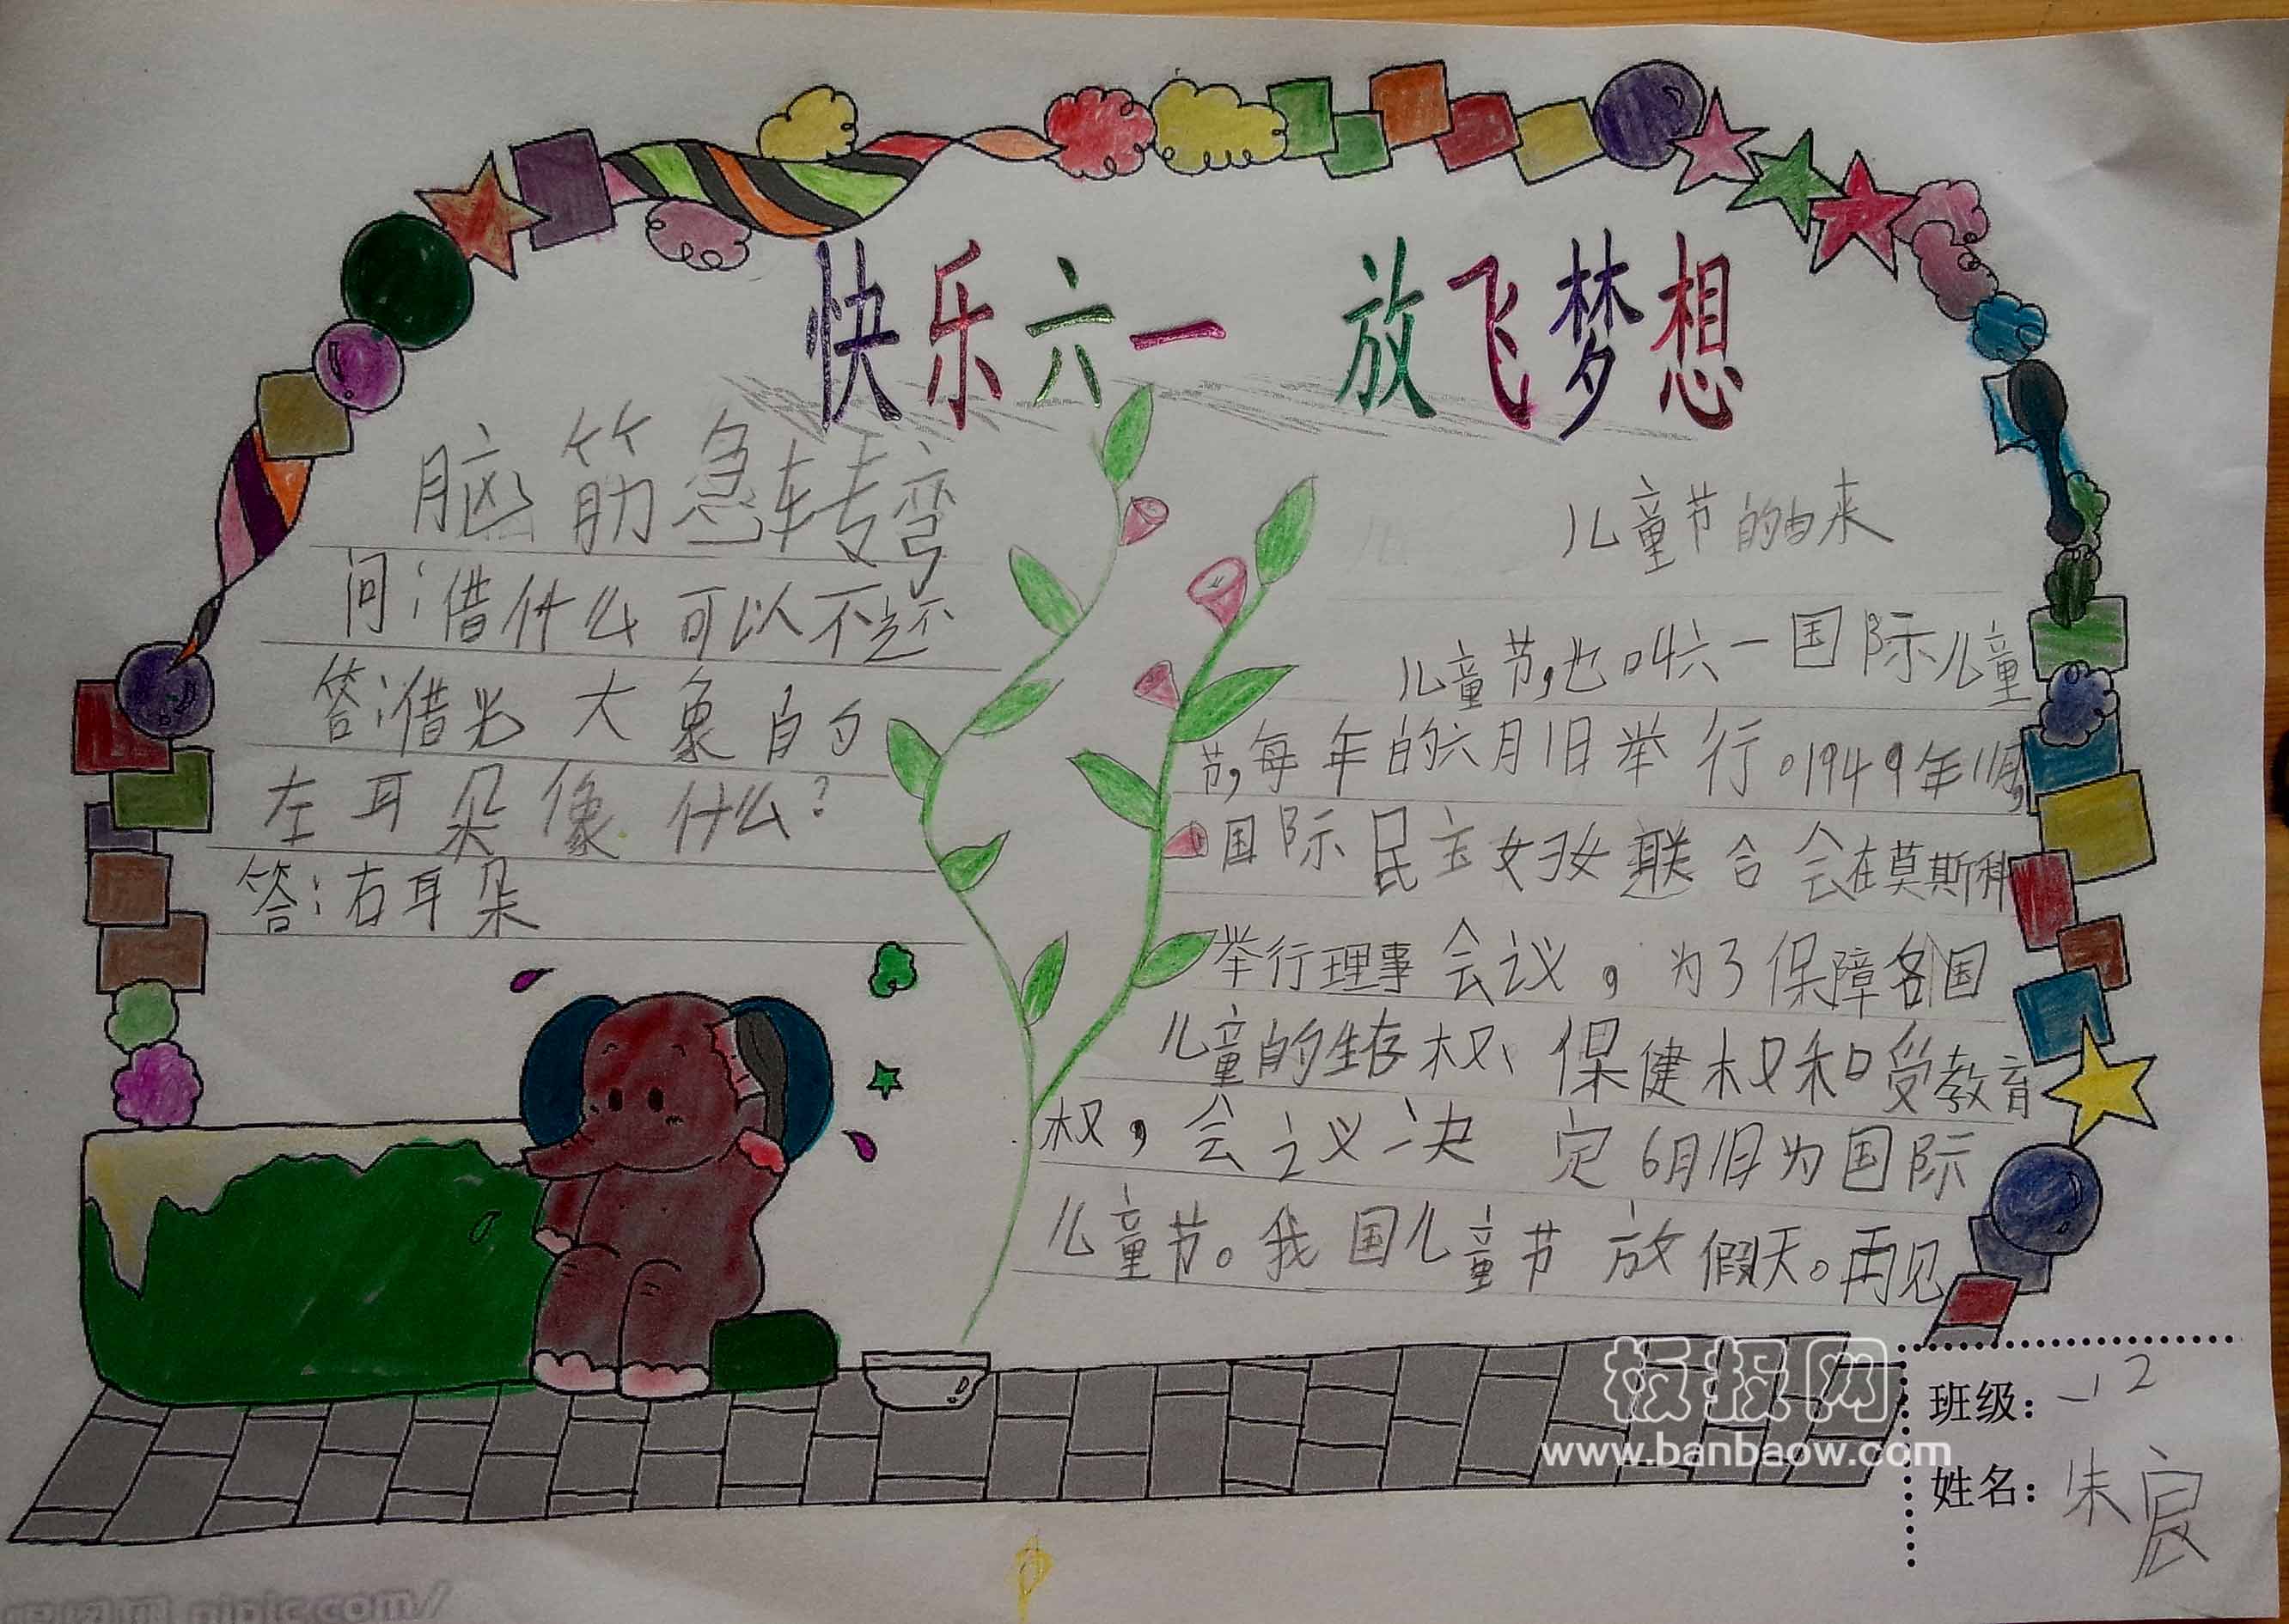 快乐六一 放飞梦想
脑筋急转弯
问:借什么可以不还
答:借光 大象的
左耳朵像什么?
答:右耳朵
儿童节的由来
儿童节,也叫六一国际儿童
节,每年的六月1日举行。1949年11月,
国际民主妇女联合会在莫斯科
举行理事会议,为了保障各国
儿童的生存权、保健权和受教育
权,会议决定6月1日为国际
儿童节。我国儿童节放假天。再见
班级:一12
姓名:朱宸
板报网
www.banbaow.com